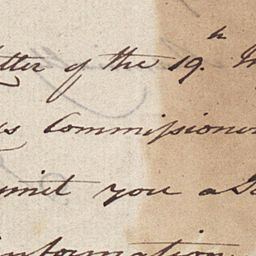 tter of the 19.th
Commissioner
mit you a
information